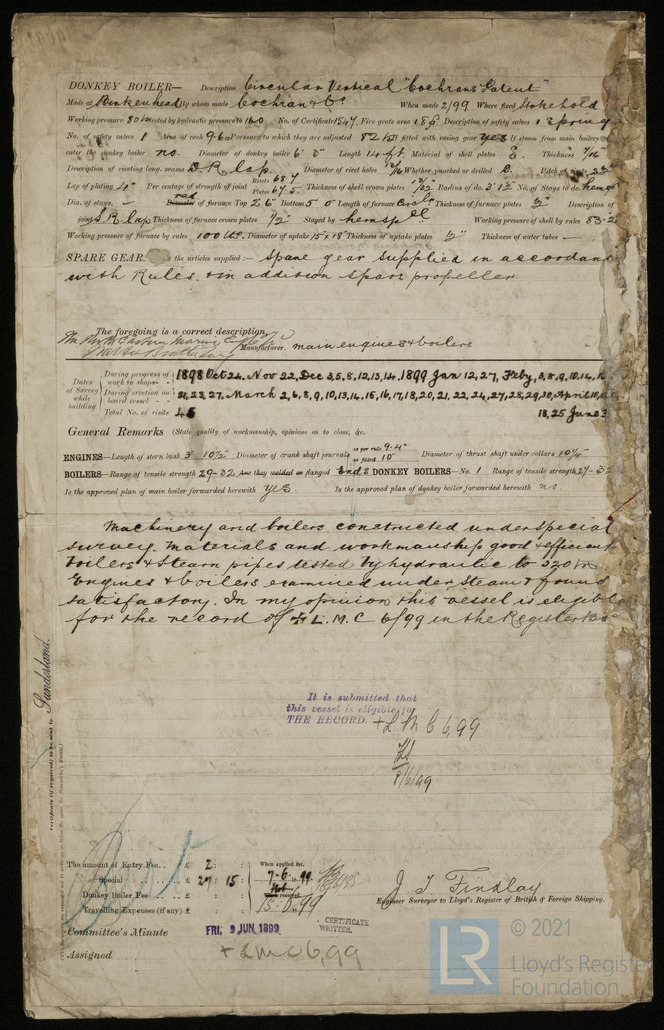 DONKEY BOILER— Description Circular Vertical "Cochrans Patent"
Made at Birkenhead By whom made Cochran & Co When made 2/99 Where fixed Stokehold
Working pressure 80 tested by hydraulic pressure to 160 No. of Certificate 1547 Fire grate area Description of safety valves 1 Spring
No. of safety valves 1 Area of each 9.62 Pressure to which they are adjusted 82 lbs If fitted with easing gear yes If steam from main boilers
enter the donkey boiler no. Diameter of donkey boiler 6' Length 14 ft. Material of shell plates S. Thickness 7/16
Description of riveting long. seams D R lap Diameter of rivet holes 13/16 Whether punched or drilled D. Pitch of
Lap of plating 4" Per centage of strength of joint Rivets 68.7 Plates 67.5 Thickness of shell crown plates 17/32 Radius of do. 3' 1½" No. of Stays to do. hemsp
Dia. of stays. — rad of furnace Top 2' 6" Bottom 5' 0" Length of furnace Thickness of furnace plates Description of
joint S R lap Thickness of furnace crown plates 1/2" Stayed by hemispcl Working pressure of shell by rules 83.2
Working pressure of furnace by rules 100 lbs. Diameter of uptake 15" x 18" Thickness of uptake plates Thickness of water tubes —
SPARE GEAR. the articles supplied:— Spare gear supplied in accordan
with Rules. & in addition spare propeller
The foregoing is a correct description,
Manufacturer. main engines & boilers
Dates of Survey while building
During progress of work in shops - - 1898 Oct 24. Nov 22, Dec 3, 5, 8, 12, 13, 14, 1899 Jan 12, 27, Feby, 3, 8, 9, 10, 14,
During erection on board vessel - - - 21, 23, 27, March 2, 6, 8, 9, 10, 13, 14, 15, 16, 17, 18, 20, 21, 22, 24, 27, 28, 29, 30, April
Total No. of visits 45 18, 25 June 3
General Remarks (State quality of workmanship, opinions as to class, &c.
ENGINES—Length of stern bush 3' 10½" Diameter of crank shaft journals as per rule 9.4" as fitted 10" Diameter of thrust shaft under collars 10¼"
BOILERS—Range of tensile strength 29-32 Are they welded or flanged Ends DONKEY BOILERS—No. 1 Range of tensile strength 27-32
Is the approved plan of main boiler forwarded herewith yes Is the approved plan of donkey boiler forwarded herewith no
Machinery and boilers constructed under special
survey. Materials and workmanship good & efficient
boilers & Steam pipes tested by hydraulic to 320
Engines & boilers examined under Steam & found
satisfactory. In my opinion this vessel is eligible
for the record of + L. M. C 6/99 in the Register
Certificate (if required) to be sent to Sunderland.
It is submitted that
this vessel is eligible for
THE RECORD. + L M C 6,99
8/6/99
The amount of Entry Fee.. £ 2 : : When applied for,
Special .. .. £ 27 : 15 : 7.6.99
Donkey Boiler Fee .. £ : :
Travelling Expenses (if any) £ : : 15.6.99
J T Findlay
Engineer Surveyor to Lloyd's Register of British & Foreign Shipping.
CERTIFICATE
WRITTEN.
Committee's Minute FRI. 9 JUN. 1899
Assigned + L M C 6,99
LR
© 2021
Lloyd's Register
Foundation